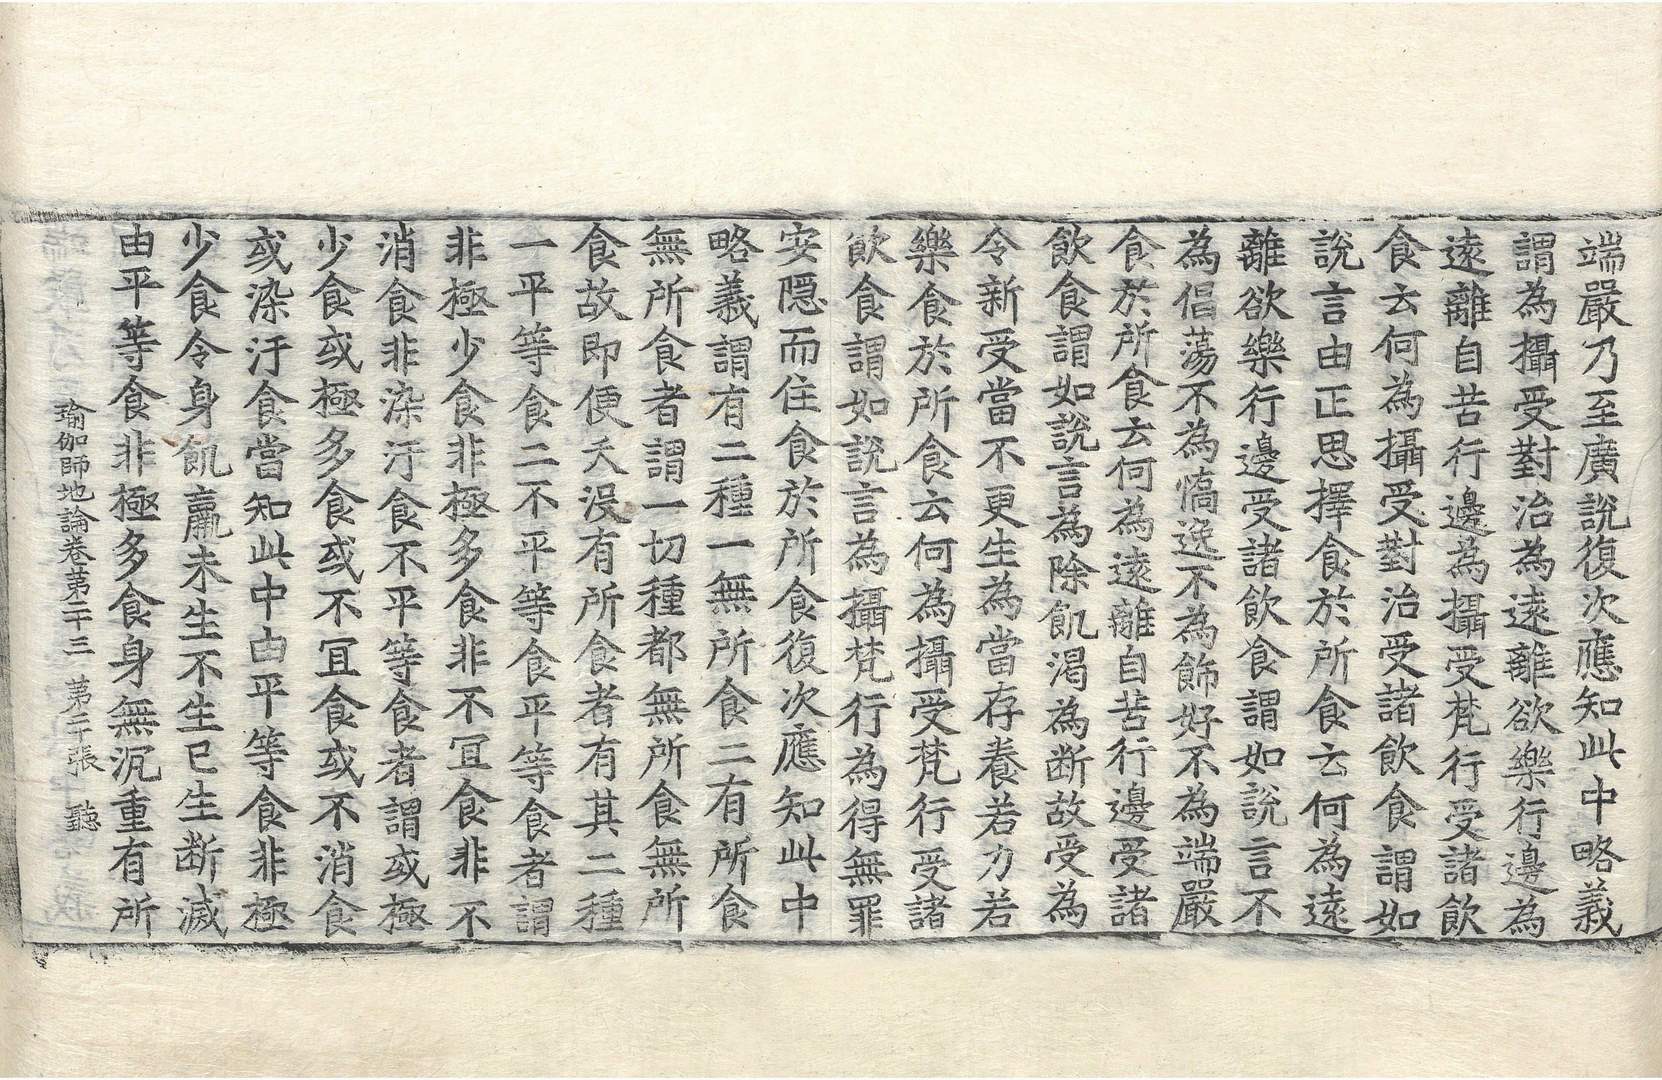 端嚴乃至廣說復次應知此中略義
謂為攝受對治為遠離欲樂行邊為
遠離自苦行邊為攝受梵行受諸飲
食云何為攝受對治受諸飲食謂如
說言由正思擇食於所食云何為遠
離欲樂行邊受諸飲食謂如說言不
為倡蕩不為憍逸不為飾好不為端嚴
食於所食云何為遠離自苦行邊受諸
飲食謂如說言為除飢渴為断故受為
令新受當不更生為當存養若力若
樂食於所食云何為攝受梵行受諸
飲食謂如說言為攝梵行為得無罪
安隱而住食於所食復次應知此中
略義謂有二種一無所食二有所食
無所食者謂一切種都無所食無所
食故即便夭没有所食者有其二種
一平等食二不平等食平等食者謂
非極少食非極多食非不冝食非不
消食非染汙食不平等食者謂或極
少食或極多食或不冝食或不消食
或染汙食當知此中由平等食非極
少食令身飢羸未生不生已生断滅
由平等食非極多食身無沉重有所
瑜伽師地論卷苐二十三 苐二十張 聽